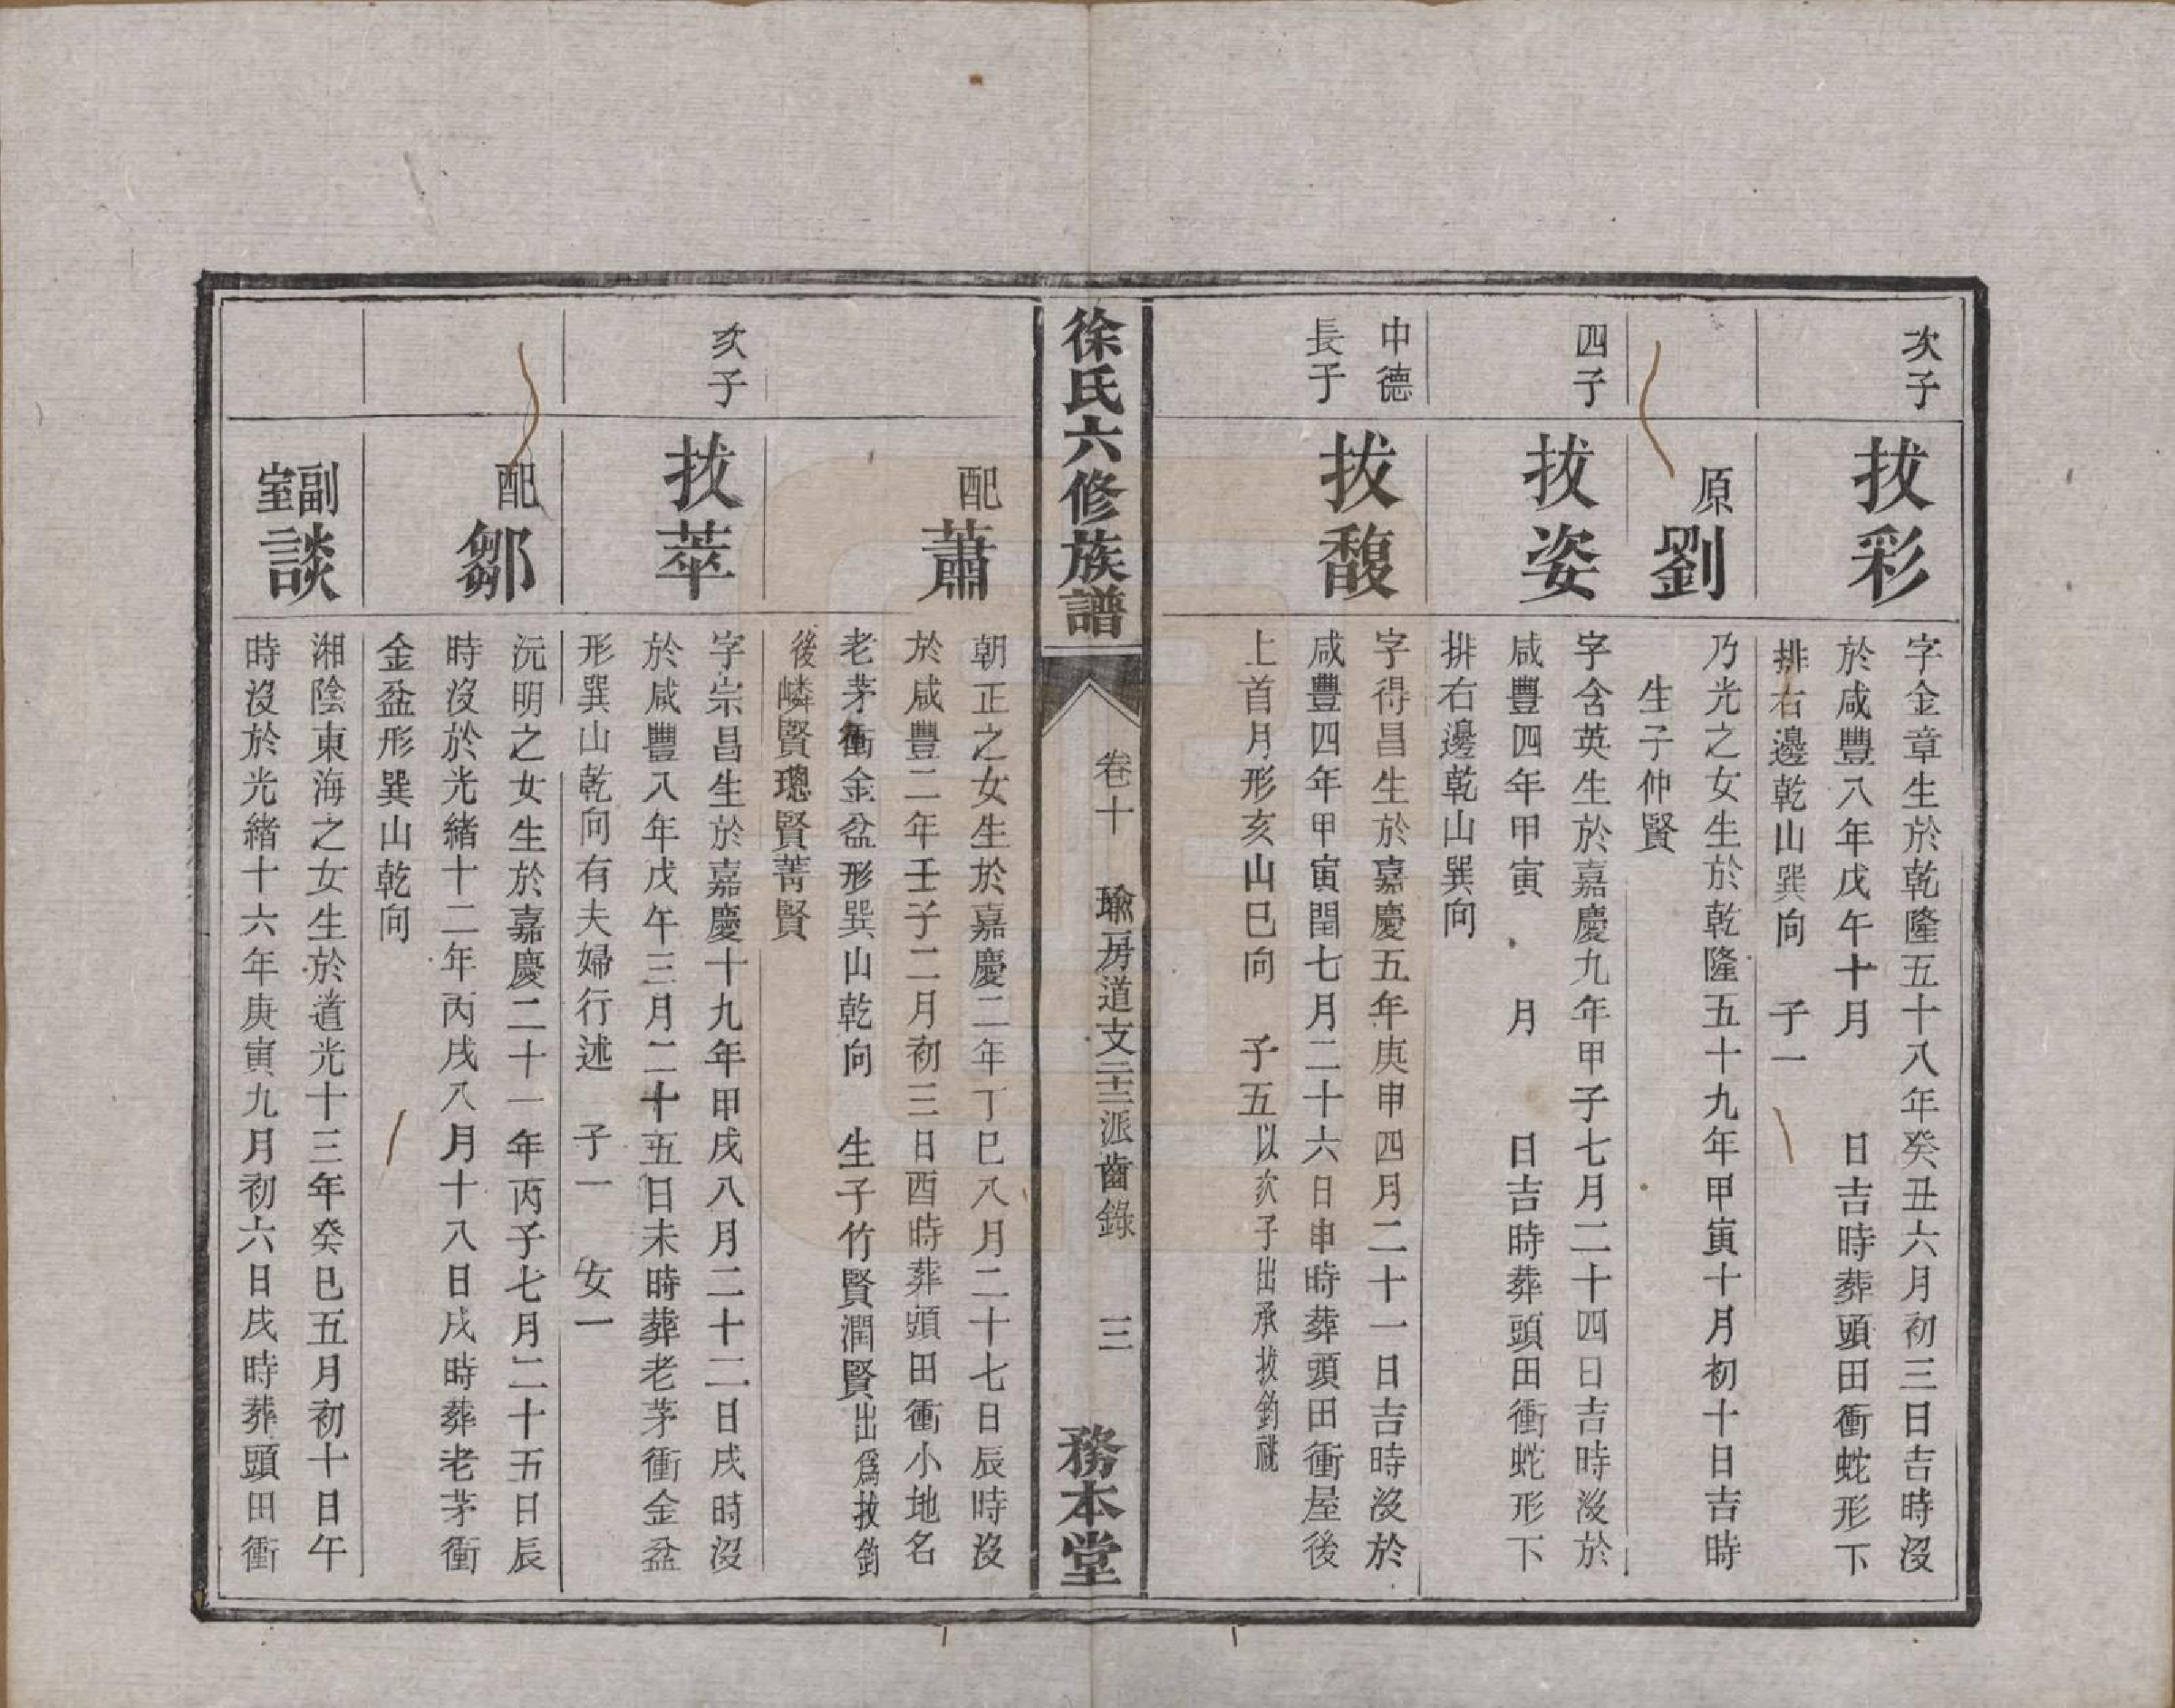 次子
拔彩
字金章生於乾隆五十八年癸丑六月初三日吉時沒
於咸豐八年戊午十月　日吉時葬頭田衝蛇形下
排右邊乾山巽向　子一
原劉
乃光之女生於乾隆五十九年甲寅十月初十日吉時
生子仲賢
四子
拔姿
字含英生於嘉慶九年甲子七月二十四日吉時沒於
咸豐四年甲寅　月　日吉時葬頭田衝蛇形下
排右邊乾山巽向
中德
長子
拔馥
字得昌生於嘉慶五年庚申四月二十一日吉時沒於
咸豐四年甲寅閏七月二十六日申時葬頭田衝屋後
上首月形亥山巳向　子五以次子出承拔鈞祧
徐氏六修族譜
卷十　瑜房道支二十三派齒錄　三
務本堂
配蕭
朝正之女生於嘉慶二年丁巳八月二十七日辰時沒
於咸豐二年壬子二月初三日酉時葬頭田衝小地名
老茅衝金盆形巽山乾向　生子竹賢潤賢出爲拔鈞
後嶙賢璁賢菁賢
次子
拔萃
字宗昌生於嘉慶十九年甲戌八月二十二日戌時沒
於咸豐八年戊午三月二十五日未時葬老茅衝金盆
形巽山乾向有夫婦行述　子一　女一
配鄒
沅明之女生於嘉慶二十一年丙子七月二十五日辰
時沒於光緒十二年丙戌八月十八日戌時葬老茅衝
金盆形巽山乾向
副室談
湘陰東海之女生於道光十三年癸巳五月初十日午
時沒於光緒十六年庚寅九月初六日戌時葬頭田衝